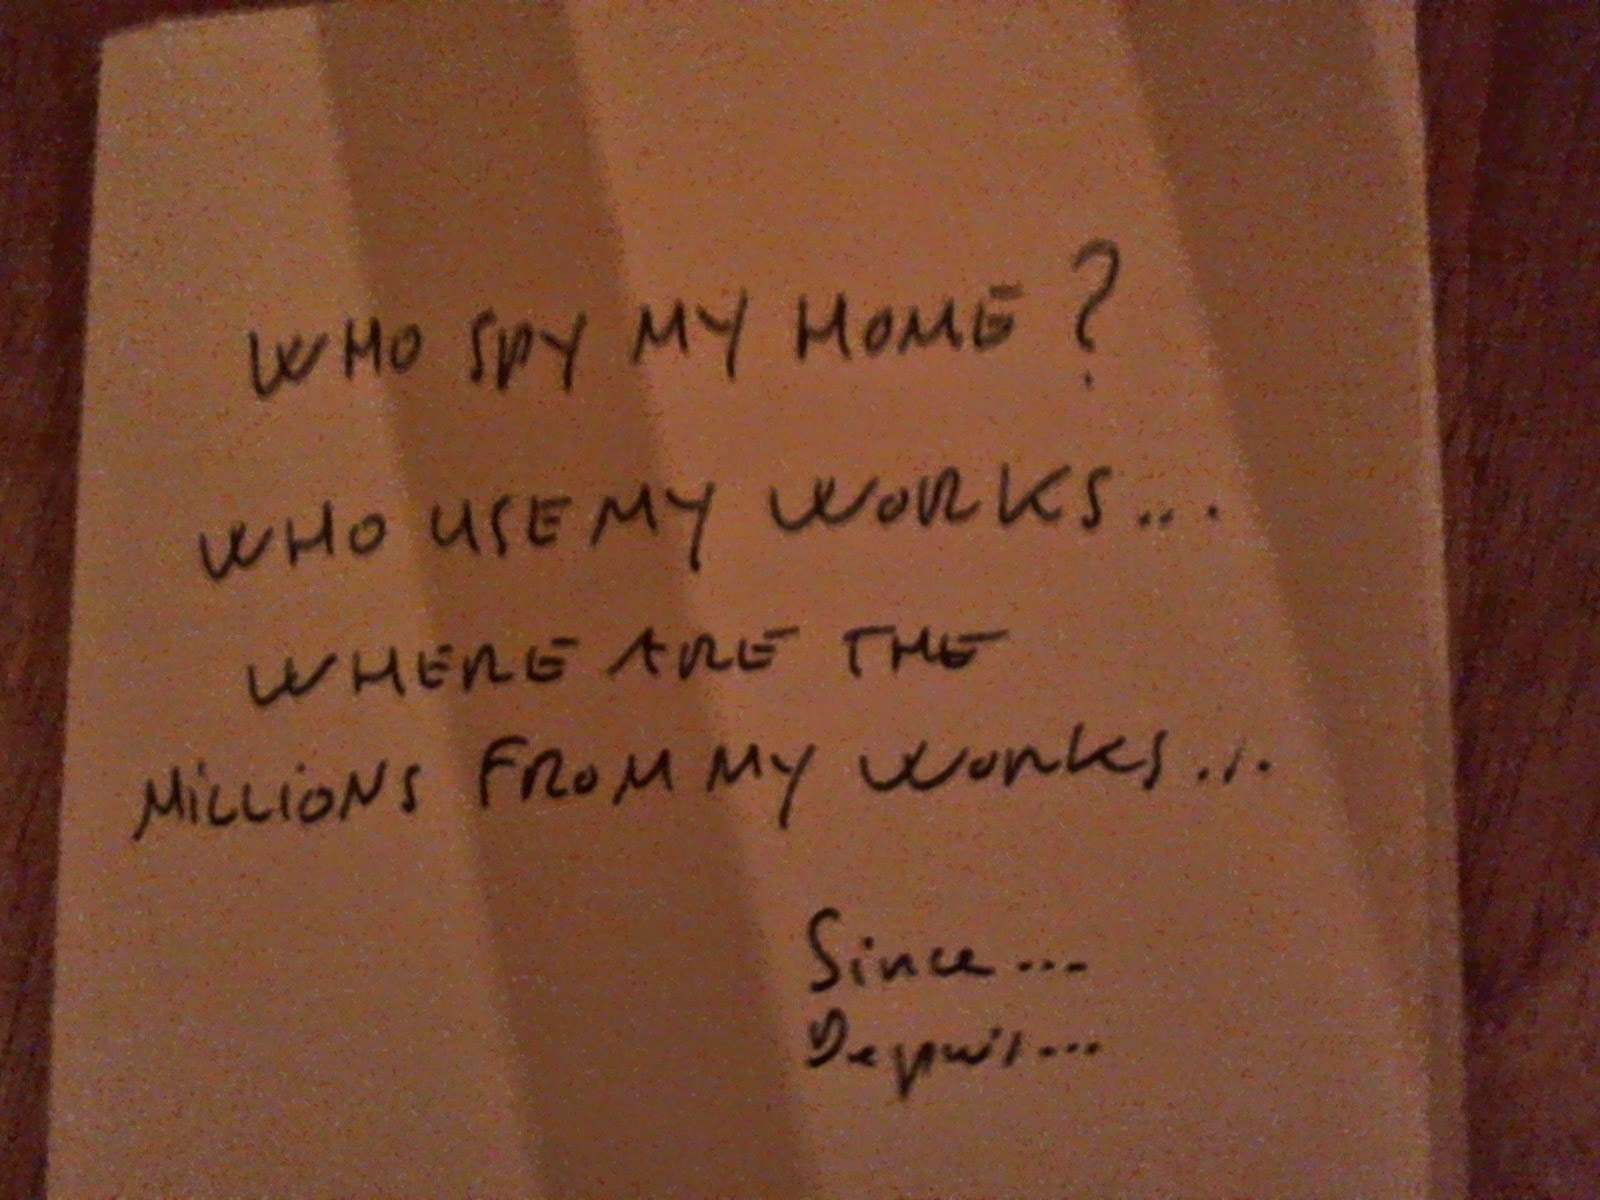 WHO SPY MY HOME ?
WHO USE MY WORKS...
WHERE ARE THE
MILLIONS FROM MY WORKS...
Since...
Depuis...